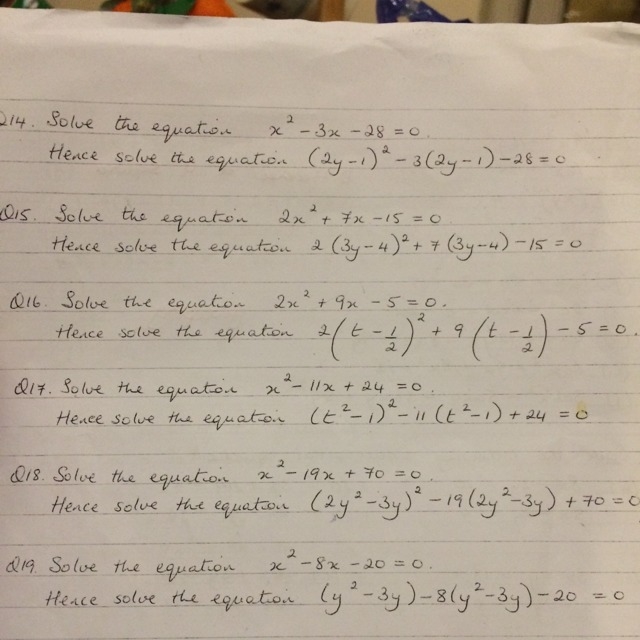 Q14. Solve the equation x² - 3x - 28 = 0.
Hence solve the equation (2y-1)² - 3(2y-1) - 28 = 0
Q15. Solve the equation 2x² + 7x - 15 = 0
Hence solve the equation 2(3y-4)² + 7(3y-4) - 15 = 0
Q16. Solve the equation 2x² + 9x - 5 = 0.
Hence solve the equation 2(t - 1/2)² + 9(t - 1/2) - 5 = 0.
Q17. Solve the equation x² - 11x + 24 = 0.
Hence solve the equation (t²-1)² - 11(t²-1) + 24 = 0
Q18. Solve the equation x² - 19x + 70 = 0.
Hence solve the equation (2y²-3y)² - 19(2y²-3y) + 70 = 0
Q19. Solve the equation x² - 8x - 20 = 0.
Hence solve the equation (y²-3y) - 8(y²-3y) - 20 = 0